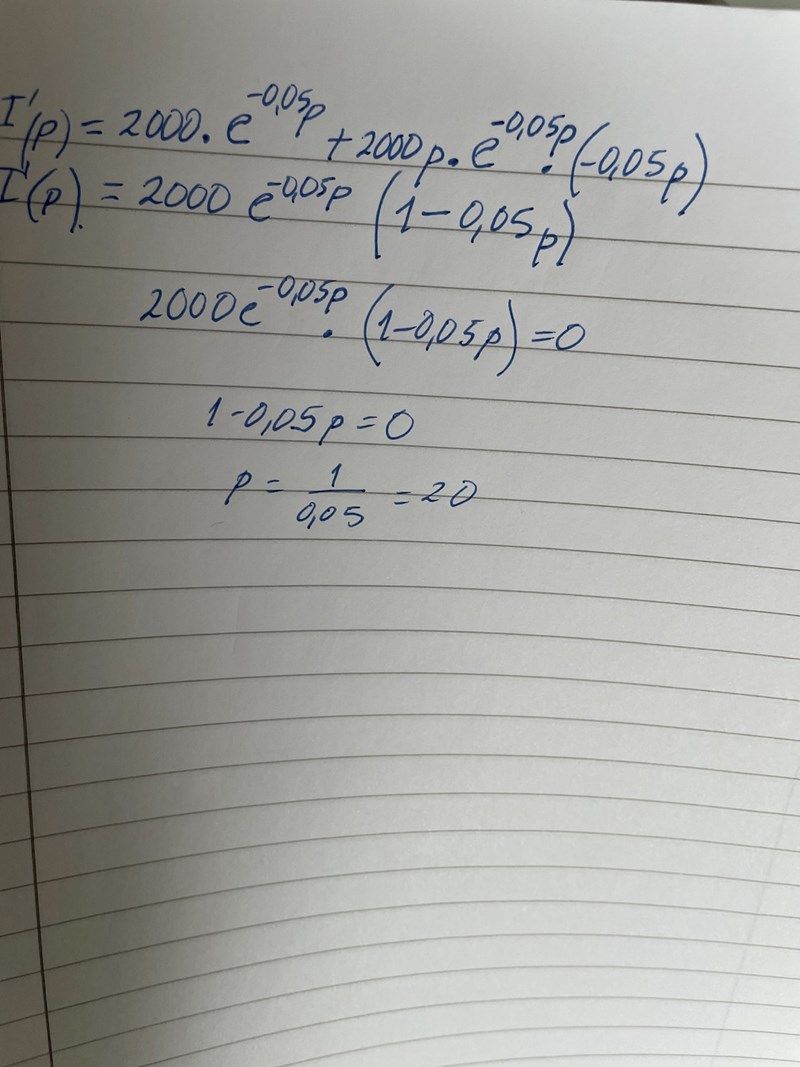 I'(p) = 2000 · e^{-0,05p} + 2000p · e^{-0,05p} · (-0,05p)
I'(p) = 2000 e^{-0,05p} (1-0,05p)
2000e^{-0,05p} · (1-0,05p) = 0
1-0,05p = 0
p = 1/0,05 = 20